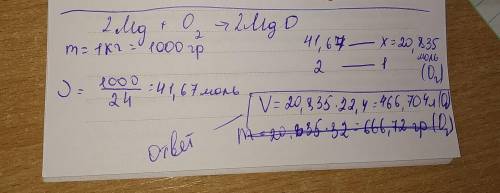 2Mg + O₂ → 2MgO
m = 1кг = 1000 гр
41,67 — x = 20,835 моль
2 — 1 (O₂)
ν = 1000/24 = 41,67 моль
V = 20,835 · 22,4 = 466,704 л (O₂)
m = 20,835 · 32 = 666,72 гр (O₂)
ответ